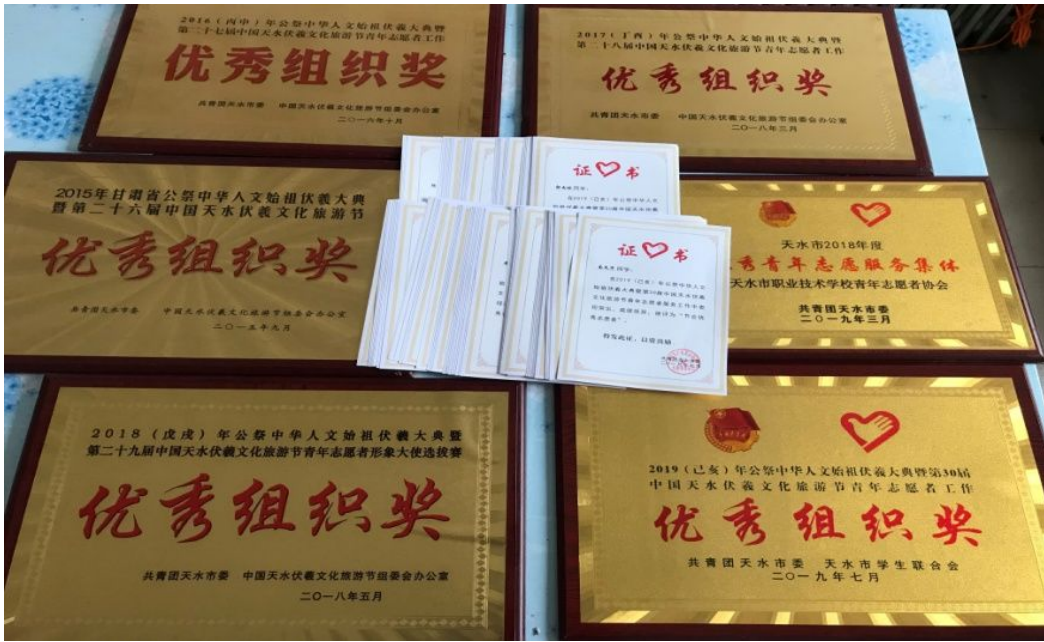 2016（丙申）年公祭中华人文始祖伏羲大典暨
第二十七届中国天水伏羲文化旅游节青年志愿者工作
优秀组织奖
共青团天水市委 中国天水伏羲文化旅游节组委会办公室
二〇一六年十月
2017（丁酉）年公祭中华人文始祖伏羲大典暨
第二十八届中国天水伏羲文化旅游节青年志愿者工作
优秀组织奖
共青团天水市委 中国天水伏羲文化旅游节组委会办公室
二〇一八年三月
2015年甘肃省公祭中华人文始祖伏羲大典
暨第二十六届中国天水伏羲文化旅游节
优秀组织奖
共青团天水市委 中国天水伏羲文化旅游节组委会办公室
二〇一五年九月
证书
同学：
在2019（己亥）年公祭中华人文
证书
同学：
在2019（己亥）年公祭中华人文
始祖伏羲大典暨第30届中国天水伏羲
文化旅游节青年志愿者服务工作中表
特发此证，以资鼓励
天水市2018年度
秀青年志愿服务集体
天水市职业技术学校青年志愿者协会
共青团天水市委
二〇一九年三月
2018（戊戌）年公祭中华人文始祖伏羲大典暨
第二十九届中国天水伏羲文化旅游节青年志愿者形象大使选拔赛
优秀组织奖
共青团天水市委 中国天水伏羲文化旅游节组委会办公室
二〇一八年五月
2019（己亥）年公祭中华人文始祖伏羲大典暨第30届
中国天水伏羲文化旅游节青年志愿者工作
优秀组织奖
共青团天水市委 天水市学生联合会
二〇一九年七月